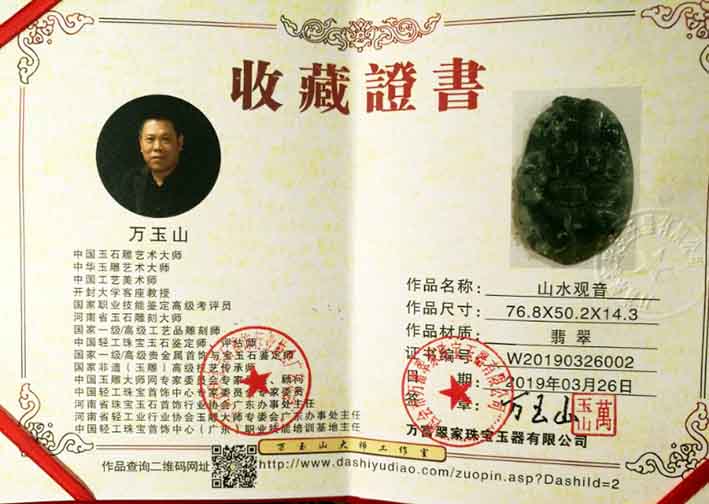 收藏證書
万玉山
中国玉石雕艺术大师
中华玉雕艺术大师
中国工艺美术师
开封大学客座教授
国家职业技能鉴定高级考评员
河南省玉石雕刻大师
国家一级/高级工艺品雕刻师
中国轻工珠宝玉石鉴定师、评估师
国家一级/高级贵金属首饰与宝玉石鉴定师
国家非遗（玉雕）高级技艺传承师
中国玉雕大师网专家委员会专家 顾问
中国轻工珠宝首饰中心专家委员会专家
河南省珠宝玉石首饰行业协会广东办事处主任
河南省轻工业行业协会玉雕大师专委会广东办事处主任
中国轻工珠宝首饰中心（广东）职业技能培训基地主任
作品名称: 山水观音
作品尺寸: 76.8X50.2X14.3
作品材质: 翡翠
证书编号: W20190326002
日 期: 2019年03月26日
签 章: 万玉山
玉山萬
万富翠家珠宝玉器有限公司
万玉山大师工作室
作品查询二维码网址
http://www.dashiyudiao.com/zuopin.asp?DashiId=2